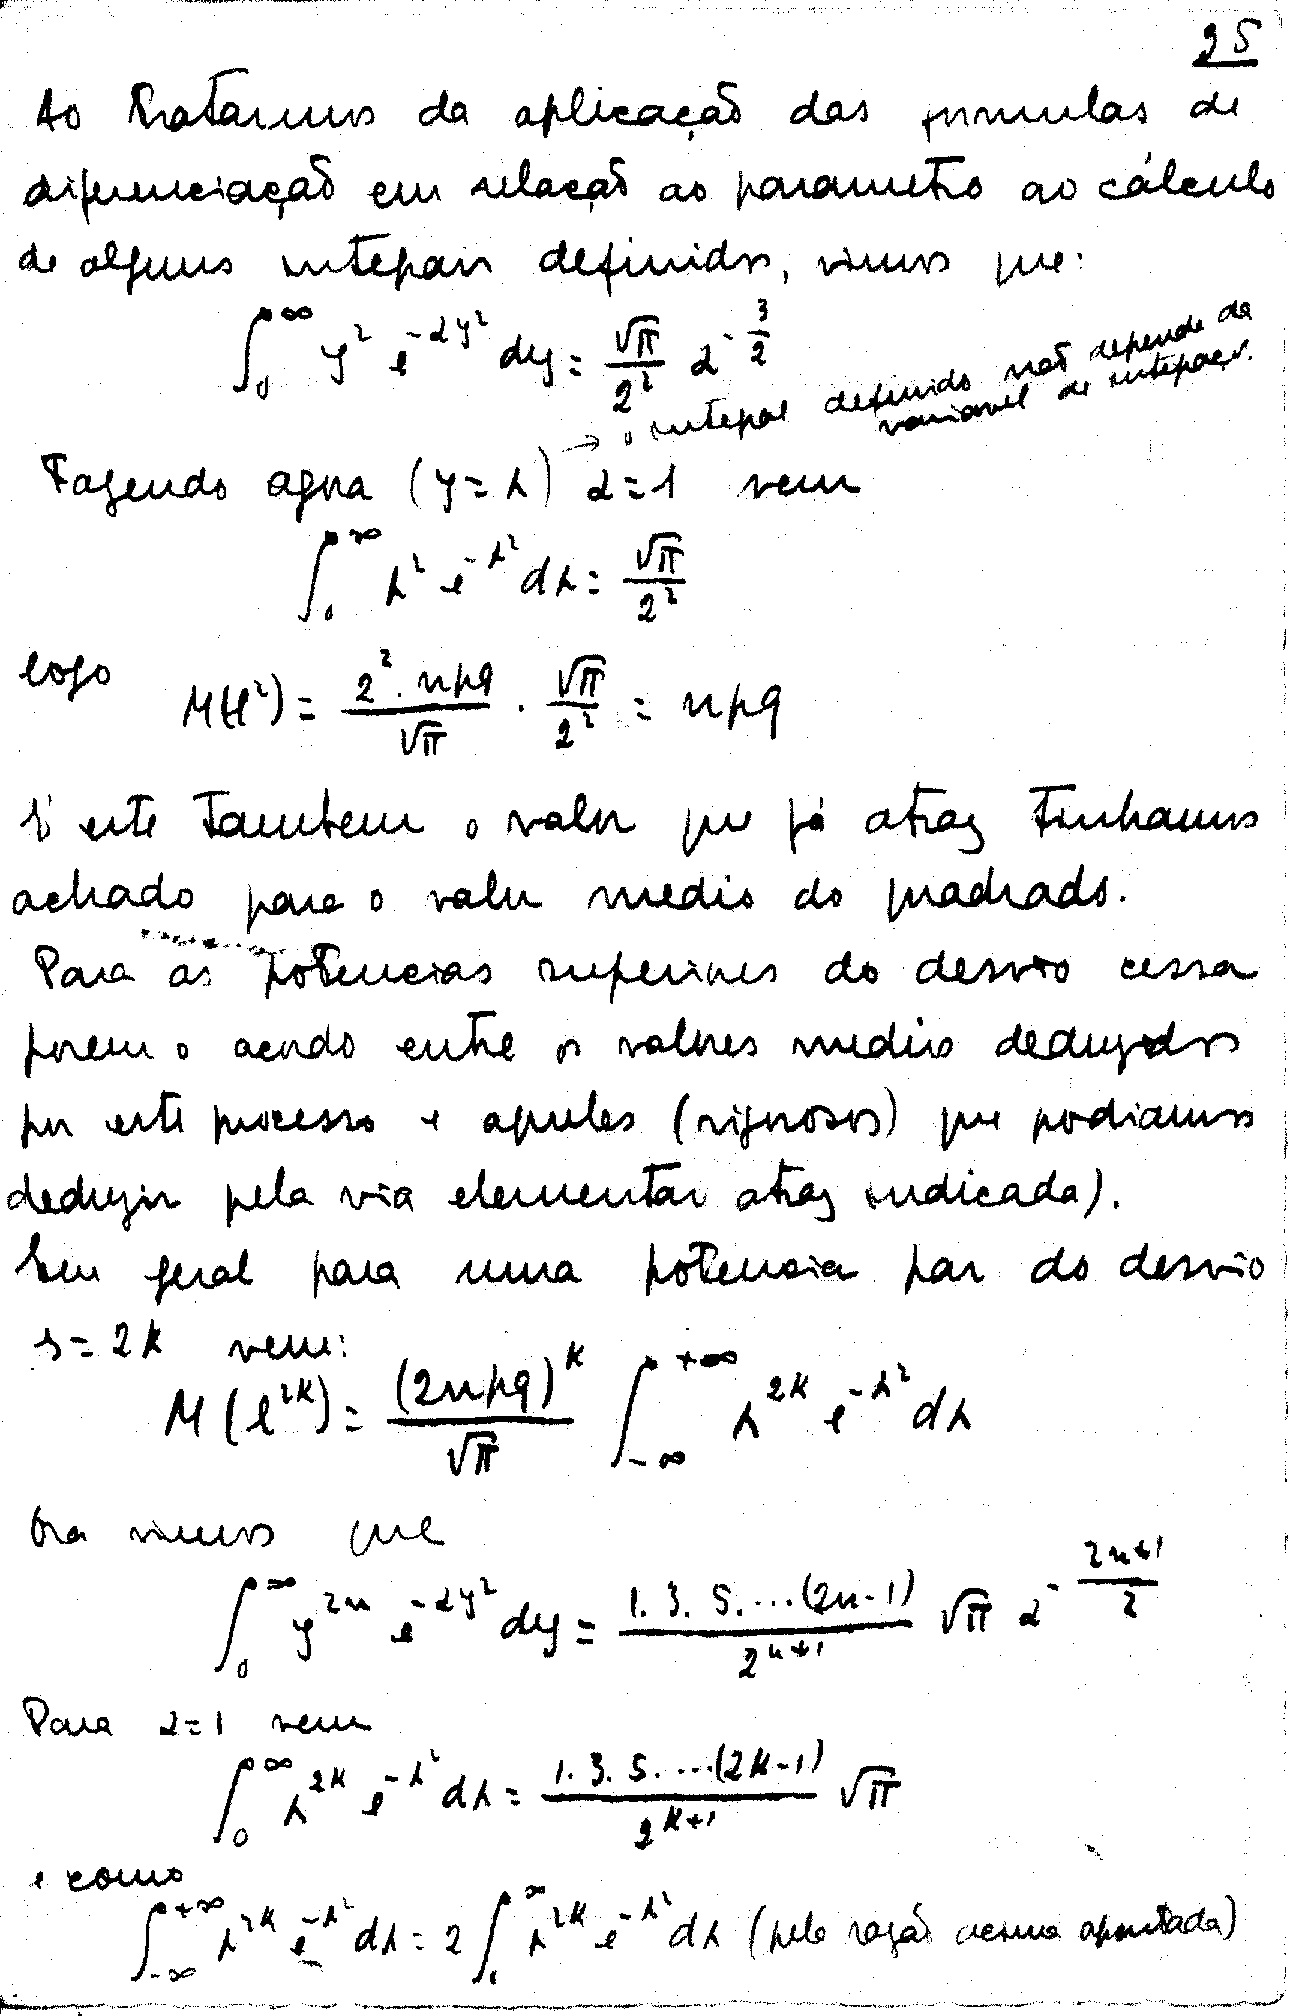 25
Ao tratarmos da aplicação das formulas de
diferenciação em relação ao parametro ao cálculo
de alguns integrais definidos, vimos que:
∫₀^∞ y² e^{-αy²} dy = √π/2² α^{-3/2}
→ o integral definido não depende da
variavel de integração.
Fazendo agora (y = λ) α = 1 vem
∫₀^∞ λ² e^{-λ²} dλ = √π/2²
logo
M(l²) = 2². npq/√π . √π/2² = npq
É este tambem o valor que já atraz tinhamos
achado para o valor medio do quadrado.
Para as potencias superiores do desvio cessa
porem o acordo entre os valores medios deduzidos
por este processo e aqueles (rigorosos) que podiamos
deduzir pela via elementar atraz indicada).
Em geral para uma potencia par do desvio
s = 2k vem:
M(l^{2k}) = (2npq)^k/√π ∫_{-∞}^{+∞} λ^{2k} e^{-λ²} dλ
Ora vimos que
∫₀^∞ y^{2n} e^{-αy²} dy = 1. 3. 5. ...(2n-1)/2^{n+1} √π α^{-(2n+1)/2}
Para α = 1 vem
∫₀^∞ λ^{2k} e^{-λ²} dλ = 1. 3. 5. ...(2k-1)/2^{k+1} √π
e como
∫_{-∞}^{+∞} λ^{2k} e^{-λ²} dλ = 2 ∫₀^∞ λ^{2k} e^{-λ²} dλ (pela razão acima apontada)